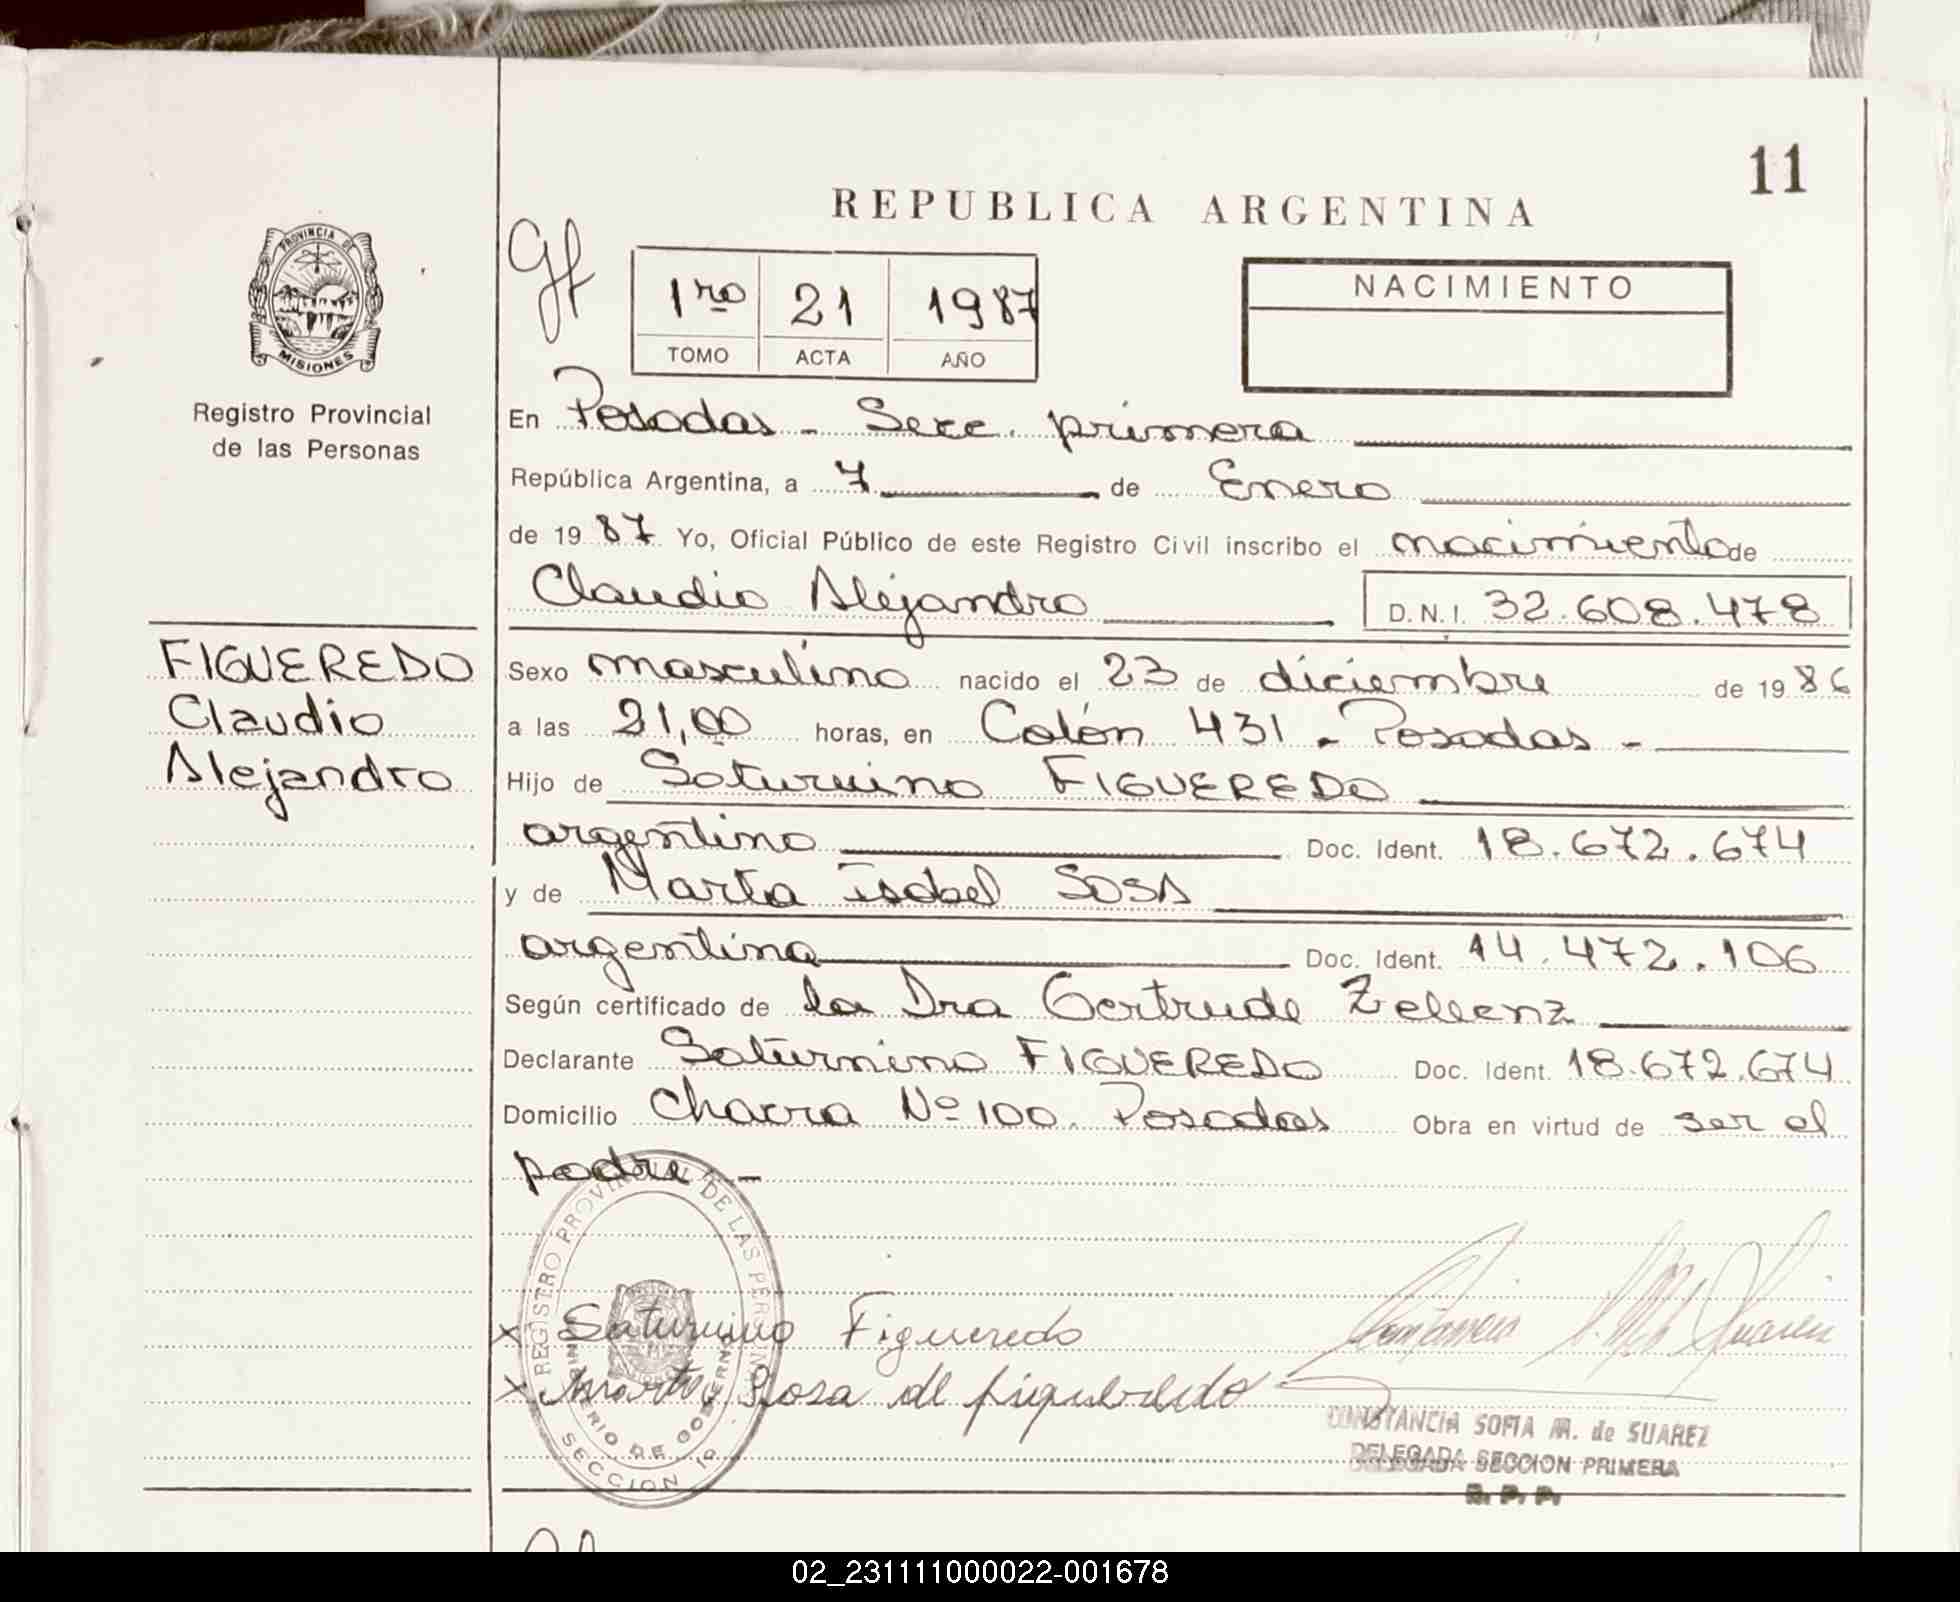 11
REPUBLICA ARGENTINA
PROVINCIA DE
MISIONES
Registro Provincial
de las Personas
1ro 21 1987
TOMO ACTA AÑO
NACIMIENTO
En Posadas - Secc. primera
República Argentina, a 7 de Enero
de 1987 Yo, Oficial Público de este Registro Civil inscribo el nacimiento de
Claudio Alejandro D.N.I. 32.608.478
FIGUEREDO
Claudio
Alejandro
Sexo masculino nacido el 23 de diciembre de 1986
a las 21,00 horas, en Colón 431 - Posadas -
Hijo de Saturnino FIGUEREDO
argentino Doc. Ident. 18.672.674
y de Marta Isabel SOSA
argentina Doc. Ident. 14.472.106
Según certificado de la Dra Gertrude Zellenz
Declarante Saturnino FIGUEREDO Doc. Ident. 18.672.674
Domicilio Chacra Nº 100. Posadas Obra en virtud de ser el
padre -
REGISTRO PROVINCIAL DE LAS PERSONAS
MINISTERIO DE GOBIERNO
SECCION 1º
x Saturnino Figueredo
x Marta Sosa de figueredo
CONSTANCIA SOFIA M. de SUAREZ
DELEGADA SECCION PRIMERA
R. P. P.
02_231111000022-001678